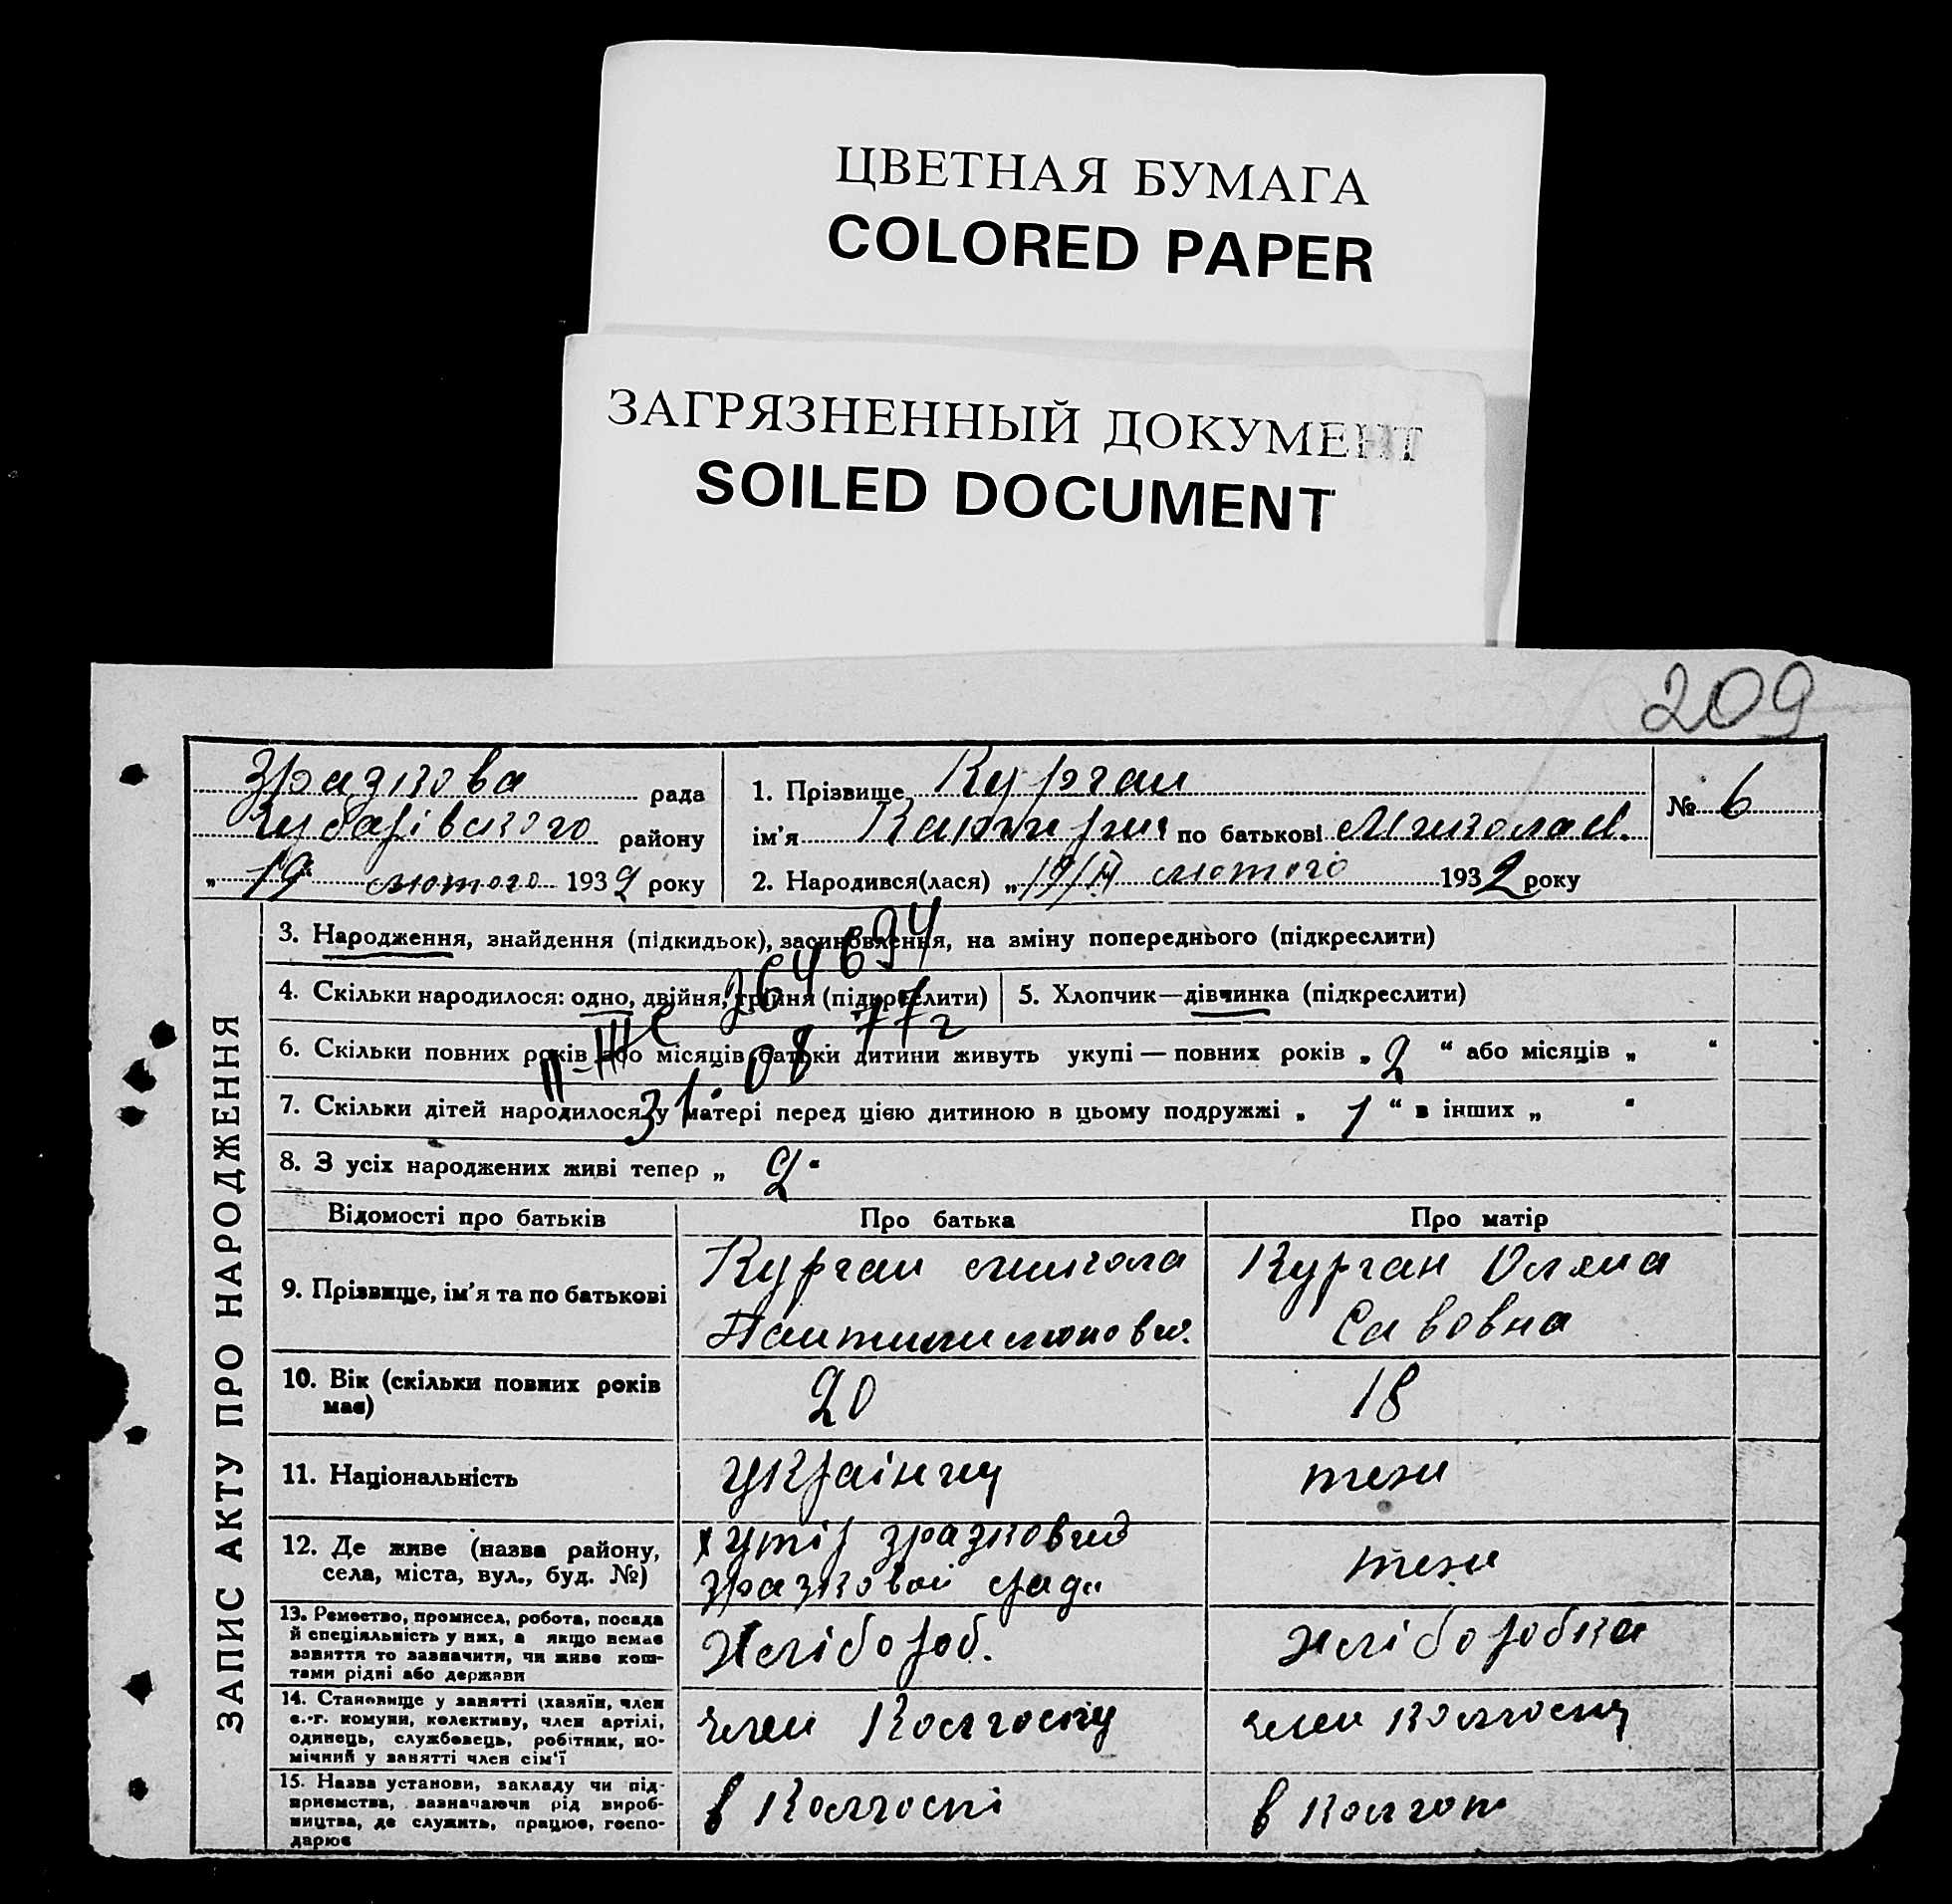 ЦВЕТНАЯ БУМАГА
COLORED PAPER
ЗАГРЯЗНЕННЫЙ ДОКУМЕНТ
SOILED DOCUMENT
209
Зразкова рада
району
„19“ лютого 1932 року
1. Прізвище Курган
ім'я Катерина по батькові Микола
2. Народився(лася) „ лютого 1932 року
№ 6
ЗАПИС АКТУ ПРО НАРОДЖЕННЯ
3. Народження, знайдення (підкидьок), засиновлення, на зміну попереднього (підкреслити)
4. Скільки народилося: одно, двійня, трійня (підкреслити)
5. Хлопчик—дівчинка (підкреслити)
6. Скільки повних років або місяців батьки дитини живуть укупі — повних років „ 2 “ або місяців „ “
7. Скільки дітей народилося у матері перед цією дитиною в цьому подружжі „ 1 “ в інших „ “
8. З усіх народжених живі тепер „ 2 “
264694
31. 08 77 г
Відомості про батьків
Про батька
Про матір
9. Прізвище, ім'я та по батькові
Курган Микола
Курган Оляна
Савовна
10. Вік (скільки повних років має)
20
18
11. Національність
українцу
теж
12. Де живе (назва району,
села, міста, вул., буд. №)
хутір Зразковий
Зразковой ради
теж
13. Ремество, промисел, робота, посада
й спеціяльність у них, а якщо немає
заняття то зазначити, чи живе кош-
тами рідні або держави
Хлібороб.
хліборобка
14. Становище у занятті (хазяїн, член
с.-г. комуни, колективу, член артілі,
одинець, службовець, робітник, по-
мічний у занятті член сім'ї
член Колгоспу
член колгоспу
15. Назва установи, закладу чи під-
приємства, зазначаючи рід вироб-
ництва, де служить, працює, госпо-
дарює
в Колгоспі
в колгосп